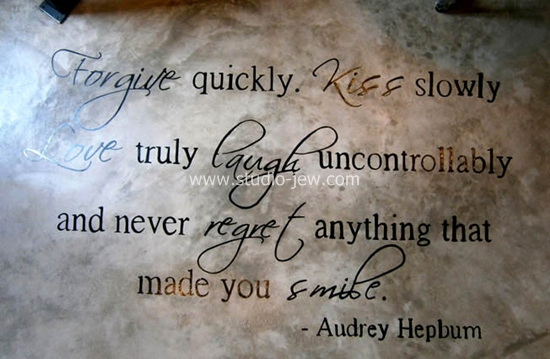 Forgive quickly. Kiss slowly
Love truly laugh uncontrollably
www.studio-jew.com
and never regret anything that
made you smile.
- Audrey Hepburn